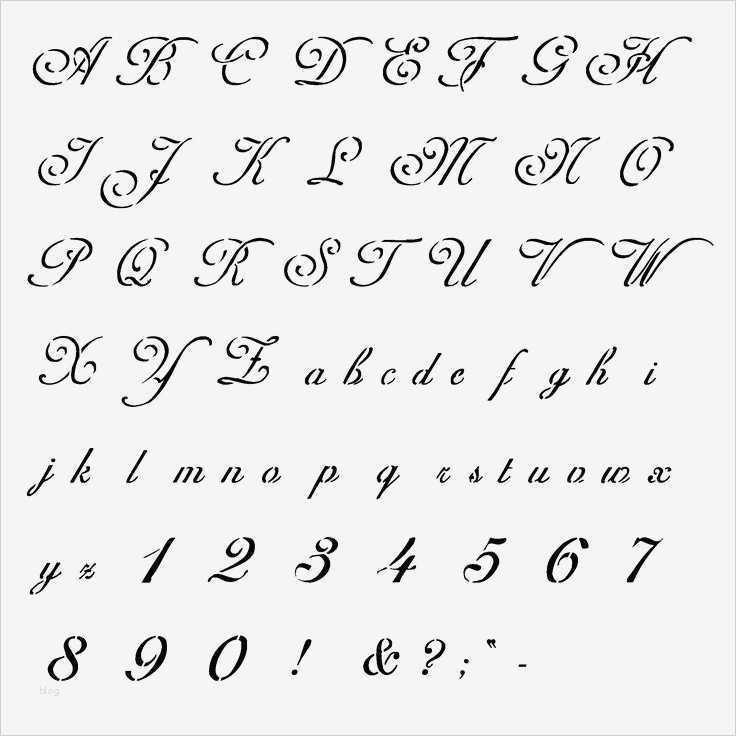 A B C D E F G H
I J K L M N O
P Q R S T U V W
X Y Z a b c d e f g h i
j k l m n o p q r s t u v w x
y z 1 2 3 4 5 6 7
8 9 0 ! & ? ; " -
blog